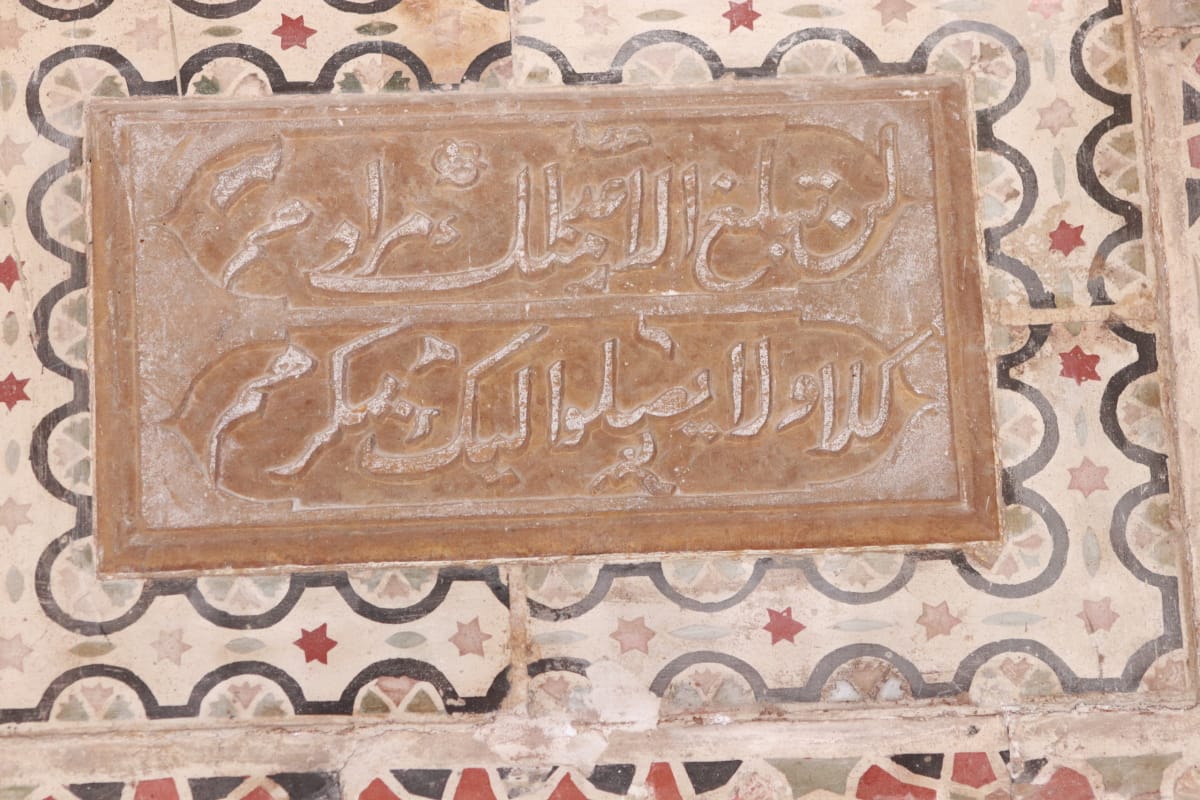 لن تبلغ مرادهم
كلا ولا يصلوا اليك بمكرهم